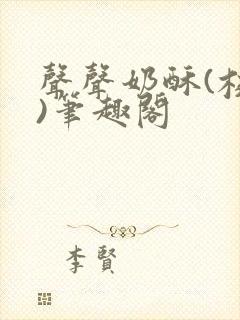 聲聲奶酥(
)筆趣閣
李賢